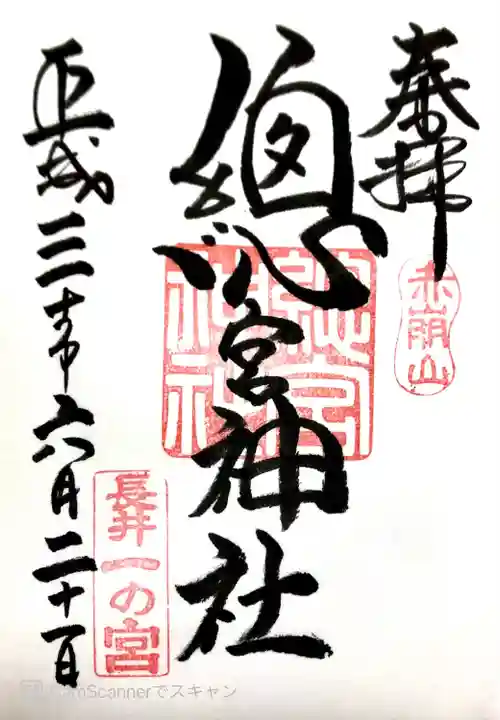 奉拝
赤崩山
總宮神社
總宮
神社
平成三十年六月二十一日
長井一の宮
CamScannerでスキャン